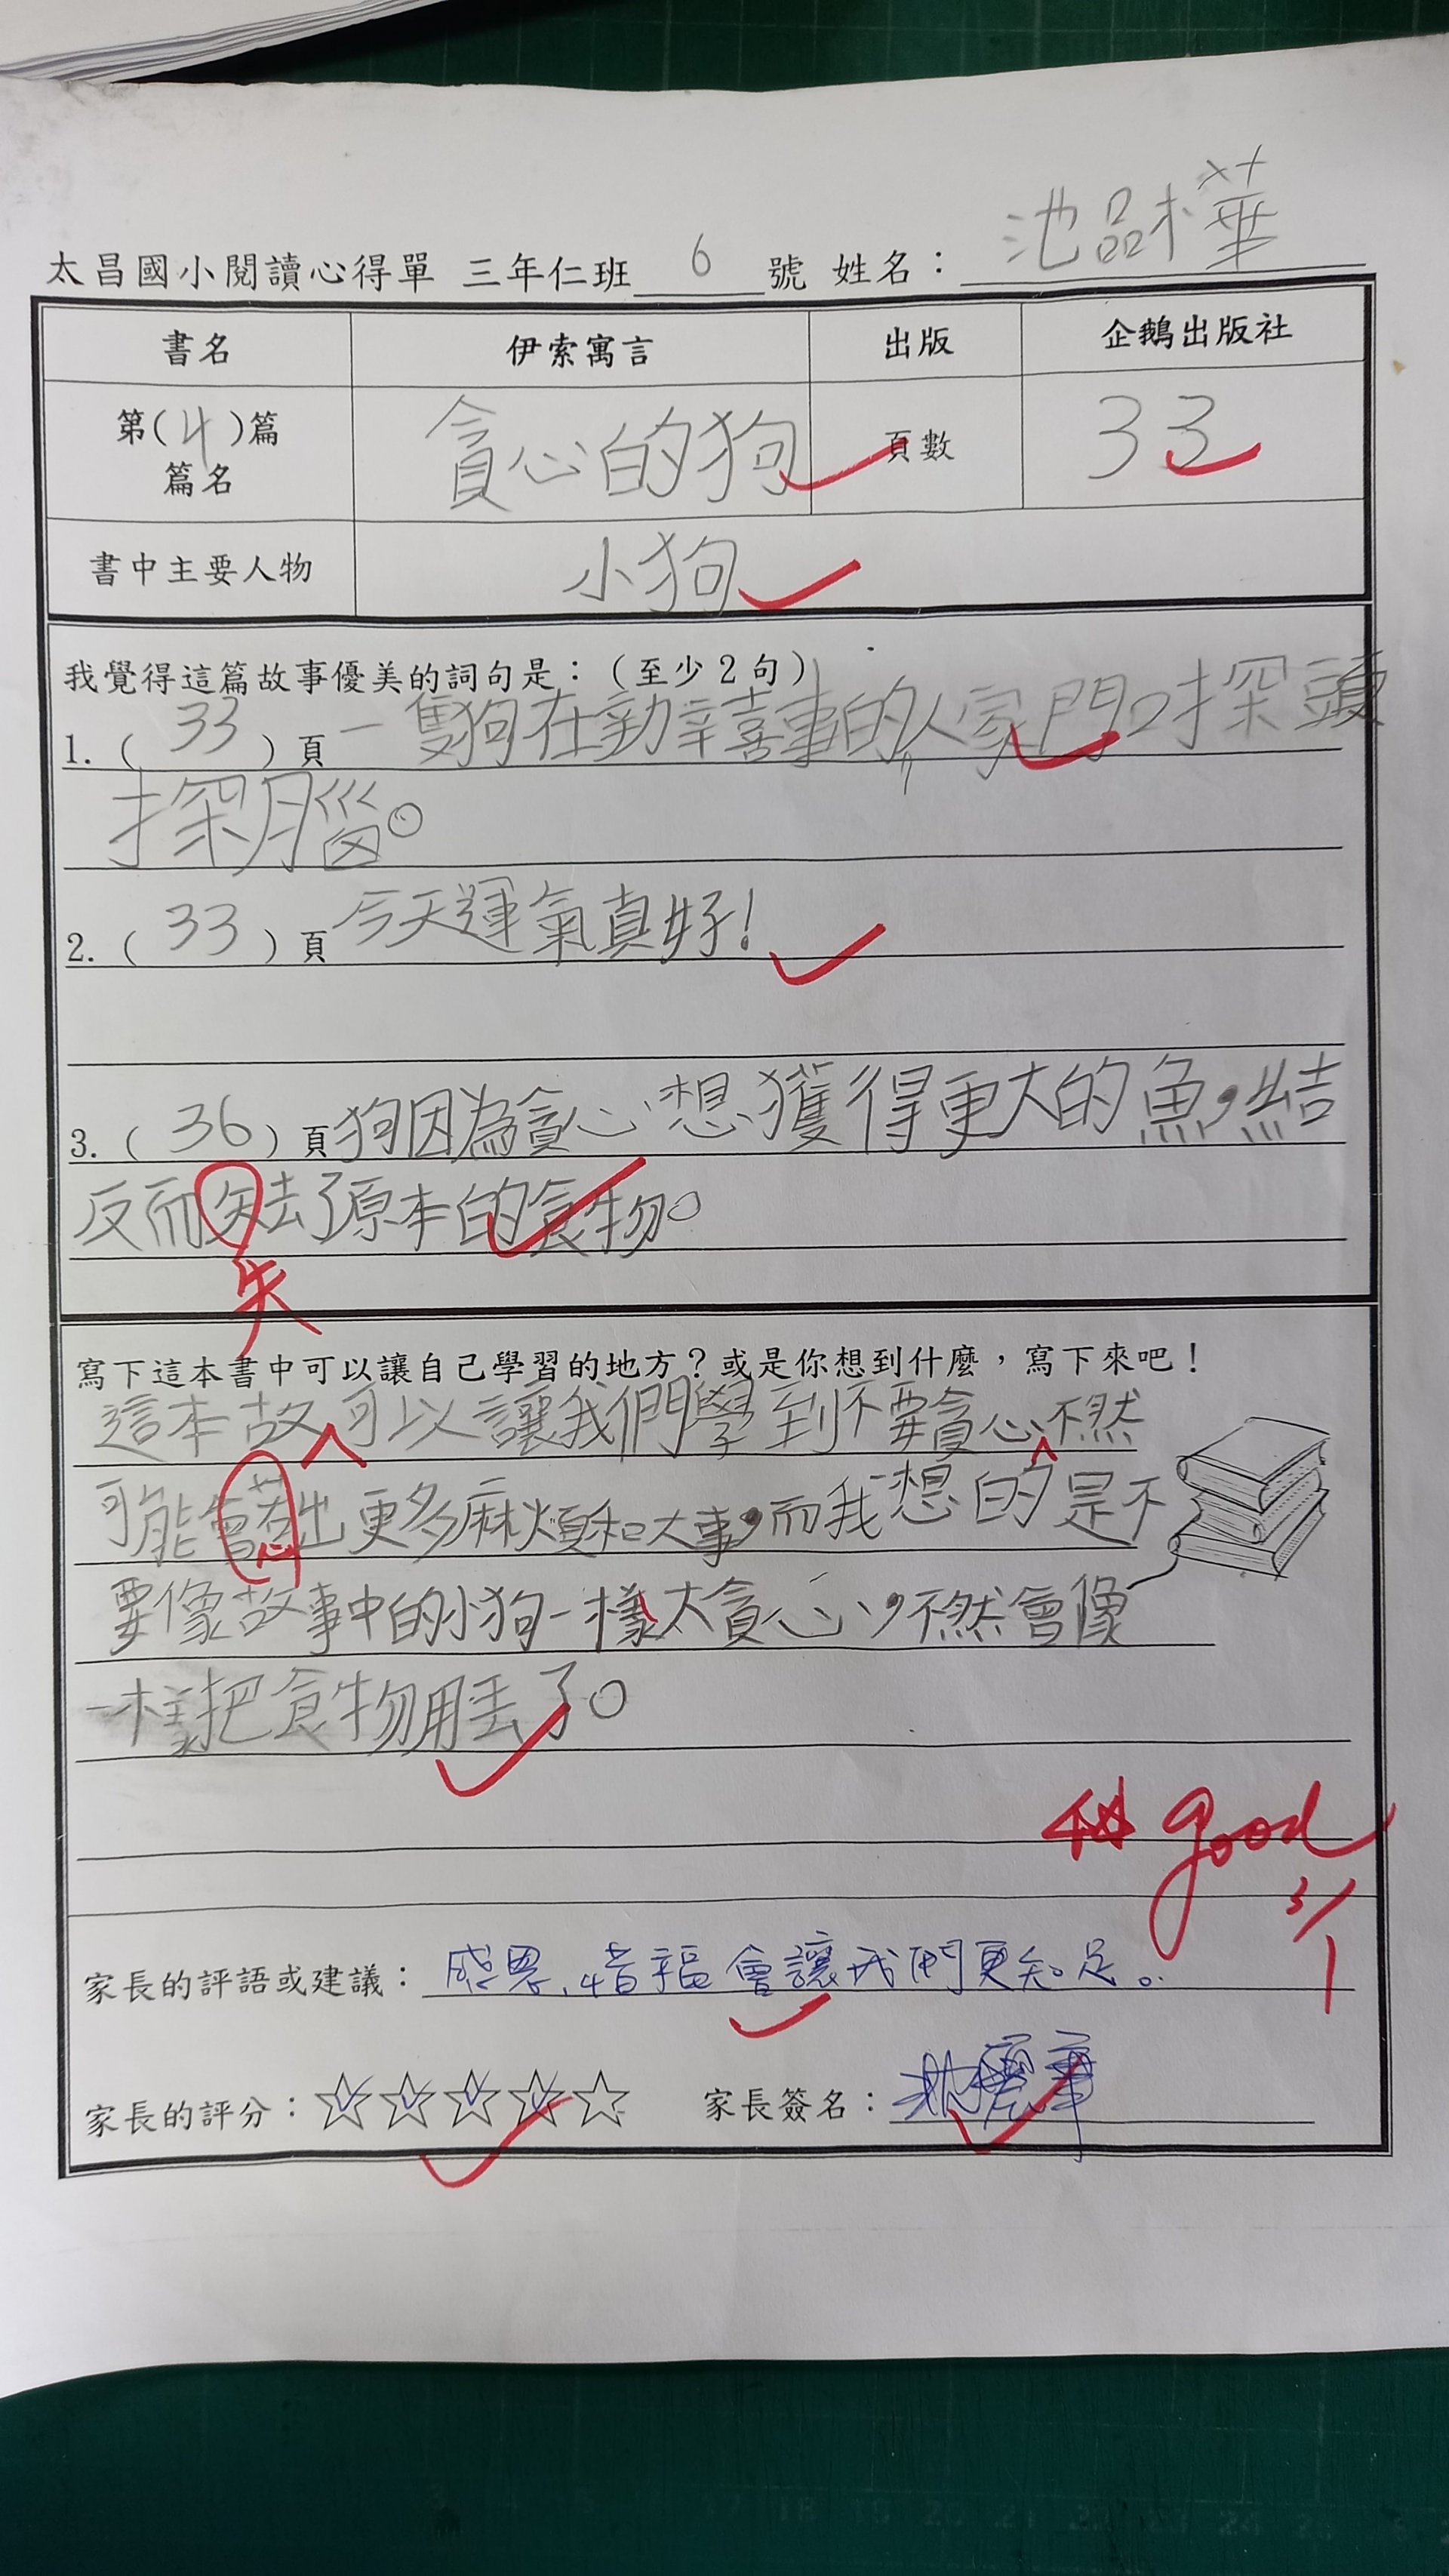 太昌國小閱讀心得單 三年仁班 6 號 姓名：池品樺
書名 伊索寓言 出版 企鵝出版社
第(4)篇
篇名 貪心的狗 頁數 33
書中主要人物 小狗
我覺得這篇故事優美的詞句是：（至少2句）
1.（33）頁一隻狗在辦喜事的人家門口探頭
探腦。
2.（33）頁今天運氣真好！
3.（36）頁狗因為貪心想獲得更大的魚，結
反而矢去了原本的食物。
失
寫下這本書中可以讓自己學習的地方？或是你想到什麼，寫下來吧！
這本故可以讓我們學到不要貪心不然
可能會惹出更多麻煩和大事，而我想的是不
要像故事中的小狗一樣太貪心，不然會像
一樣把食物用丟了。
good
3/1
家長的評語或建議：感恩、惜福會讓我們更知足。
家長的評分：☆☆☆☆☆ 家長簽名：